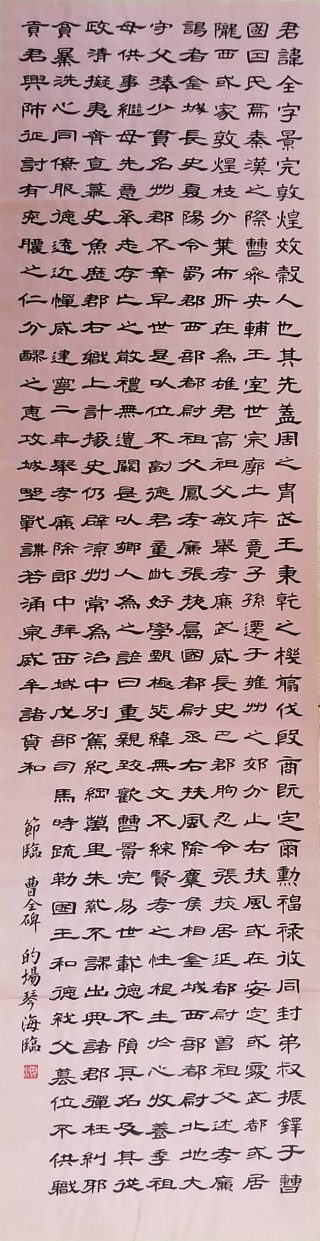 君諱全字景完敦煌效穀人也其先蓋周之胄武王秉乾之機翦伐殷商既定爾勳福祿攸同封弟叔振鐸于曹
國因氏焉秦漢之際曹參夾輔王室世宗廓土斥竟子孫遷于雍州之郊分止右扶風或在安定或處武都或居
隴西或家敦煌枝分葉布所在為雄君高祖父敏舉孝廉武威長史巴郡朐忍令張掖居延都尉曾祖父述孝廉
謁者金城長史夏陽令蜀郡西部都尉祖父鳳孝廉張掖屬國都尉丞右扶風隃麋侯相金城西部都尉北地大
守父琫少貫名州郡不幸早世是以位不副德君童齔好學甄極毖緯無文不綜賢孝之性根生於心收養季祖
母供事繼母先意承志存亡之敬禮無遺闕是以鄉人為之諺曰重親致歡曹景完易世載德不隕其名及其從
政清擬夷齊直慕史魚歷郡右職上計掾史仍辟涼州常為治中別駕紀綱萬里朱紫不謬出典諸郡彈枉糾邪
貪暴洗心同僚服德遠近憚威建寧二年舉孝廉除郎中拜西域戊部司馬時疏勒國王和德弒父篡位不供職
貢君興師征討有兗膿之仁分醪之惠攻城野戰謀若涌泉威牟諸賁和
節臨 曹全碑 的場琴海臨